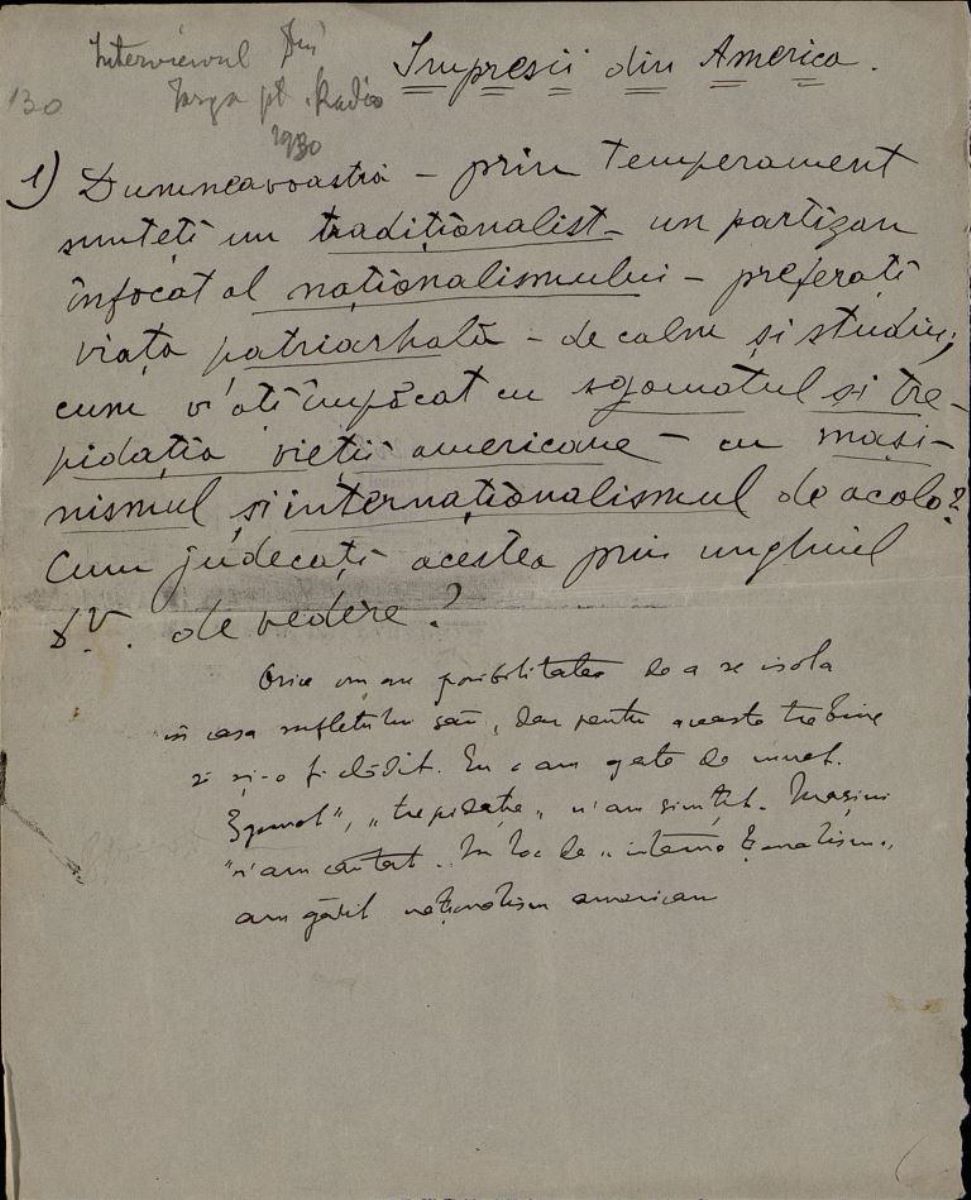 Interviewul Dlui
Iorga pt. Radio
1930
130
Impresii din America.
1) Dumneavoastră – prin temperament
sunteți un tradiționalist – un partizan
înfocat al naționalismului – preferați
viața patriarhală – de calm și studiu;
cum v'ați împăcat cu sgomotul și tre-
pidația vieții americane – cu mași-
nismul și internaționalismul de acolo?
Cum judecați acestea prin unghiul
D.V. de vedere?
Orice om are posibilitatea de a se isola
în casa sufletului său, dar pentru aceasta trebuie
să și-o fi clădit. Eu o am gata de mult.
Sgomot", „trepidație" n'am simțit. Mașini
n'am căutat. În loc de „internaționalism"
am găsit naționalism american